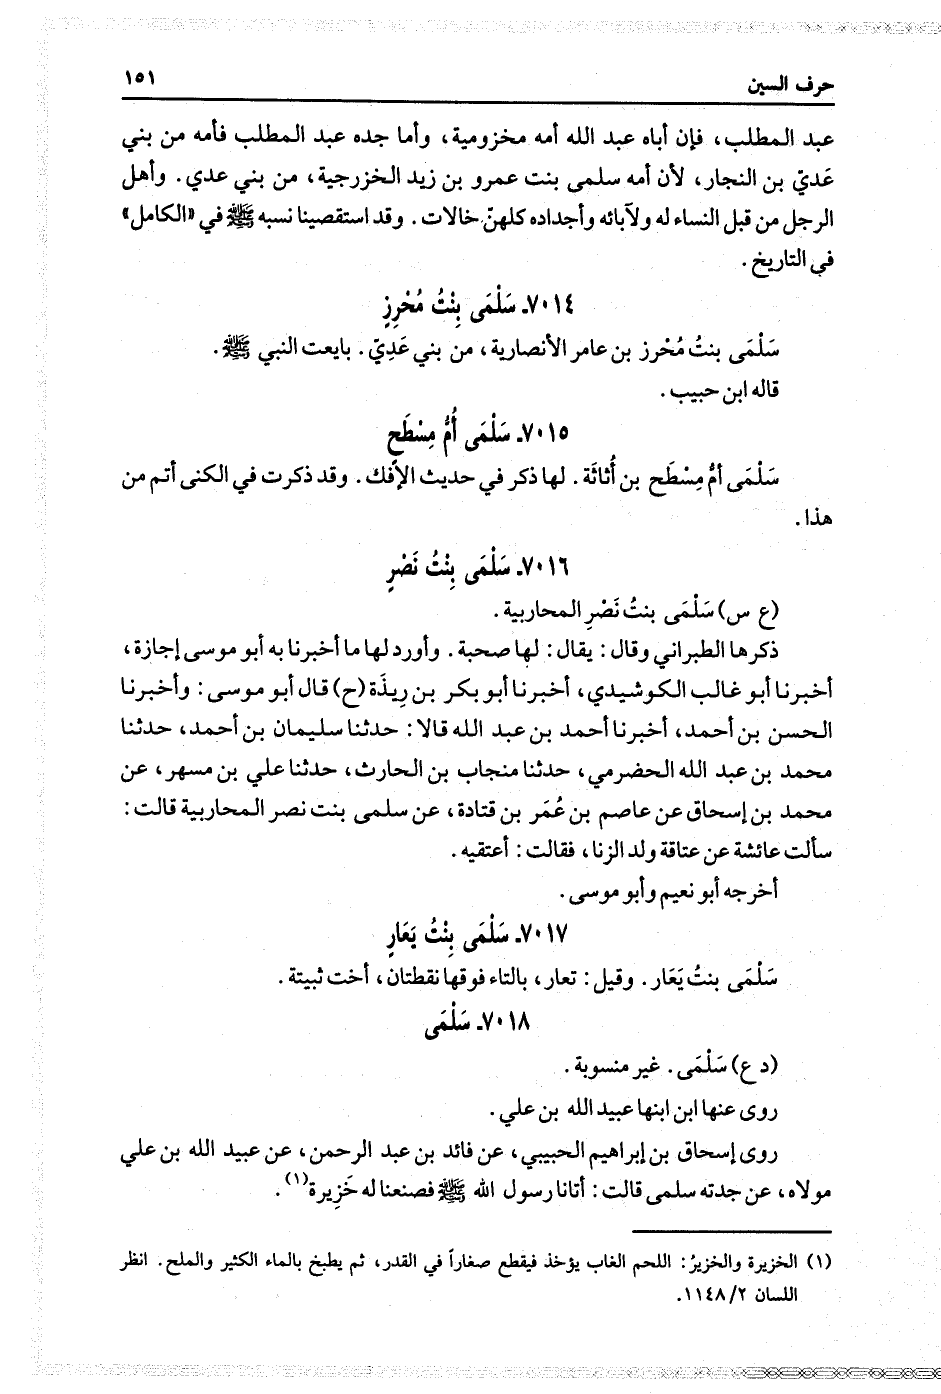 حرف السين ١٥١
عبد المطلب، فإن أباه عبد الله أمه مخزومية، وأما جده عبد المطلب فأمه من بني
عَديّ بن النجار، لأن أمه سلمى بنت عمرو بن زيد الخزرجية، من بني عدي. وأهل
الرجل من قبل النساء له ولآبائه وأجداده كلهنّ خالات. وقد استقصينا نسبه ﷺ في «الكامل»
في التاريخ.
٧٠١٤ـ سَلْمَى بِنْتُ مُحْرِزٍ
سَلْمَى بنتُ مُحْرز بن عامر الأنصارية، من بني عَدِيّ. بايعت النبي ﷺ.
قاله ابن حبيب.
٧٠١٥ـ سَلْمَى أُمُّ مِسْطَحٍ
سَلْمَى أمُّ مِسْطَح بن أُثاثَة. لها ذكر في حديث الإفك. وقد ذكرت في الكنى أتم من
هذا.
٧٠١٦ـ سَلْمَى بِنْتُ نَصْرٍ
(ع س) سَلْمَى بنتُ نَصْرِ المحاربية.
ذكرها الطبراني وقال: يقال: لها صحبة. وأورد لها ما أخبرنا به أبو موسى إجازة،
أخبرنا أبو غالب الكوشيدي، أخبرنا أبو بكر بن رِيذَة (ح) قال أبو موسى: وأخبرنا
الحسن بن أحمد، أخبرنا أحمد بن عبد الله قالا: حدثنا سليمان بن أحمد، حدثنا
محمد بن عبد الله الحضرمي، حدثنا منجاب بن الحارث، حدثنا علي بن مسهر، عن
محمد بن إسحاق عن عاصم بن عُمَر بن قتادة، عن سلمى بنت نصر المحاربية قالت:
سألت عائشة عن عتاقة ولد الزنا، فقالت: أعتقيه.
أخرجه أبو نعيم وأبو موسى.
٧٠١٧ـ سَلْمَى بِنْتُ يَعَارٍ
سَلْمَى بنتُ يَعَار. وقيل: تعار، بالتاء فوقها نقطتان، أخت ثبيتة.
٧٠١٨ـ سَلْمَى
(د ع) سَلْمَى. غير منسوبة.
روى عنها ابن ابنها عبيد الله بن علي.
روى إسحاق بن إبراهيم الحبيبي، عن فائد بن عبد الرحمن، عن عبيد الله بن علي
مولاه، عن جدته سلمى قالت: أتانا رسول الله ﷺ فصنعنا له خَزِيرة(١).
(١) الخزيرة والخزيرُ: اللحم الغاب يؤخذ فيقطع صغاراً في القدر، ثم يطبخ بالماء الكثير والملح. انظر
اللسان ١١٤٨/٢.